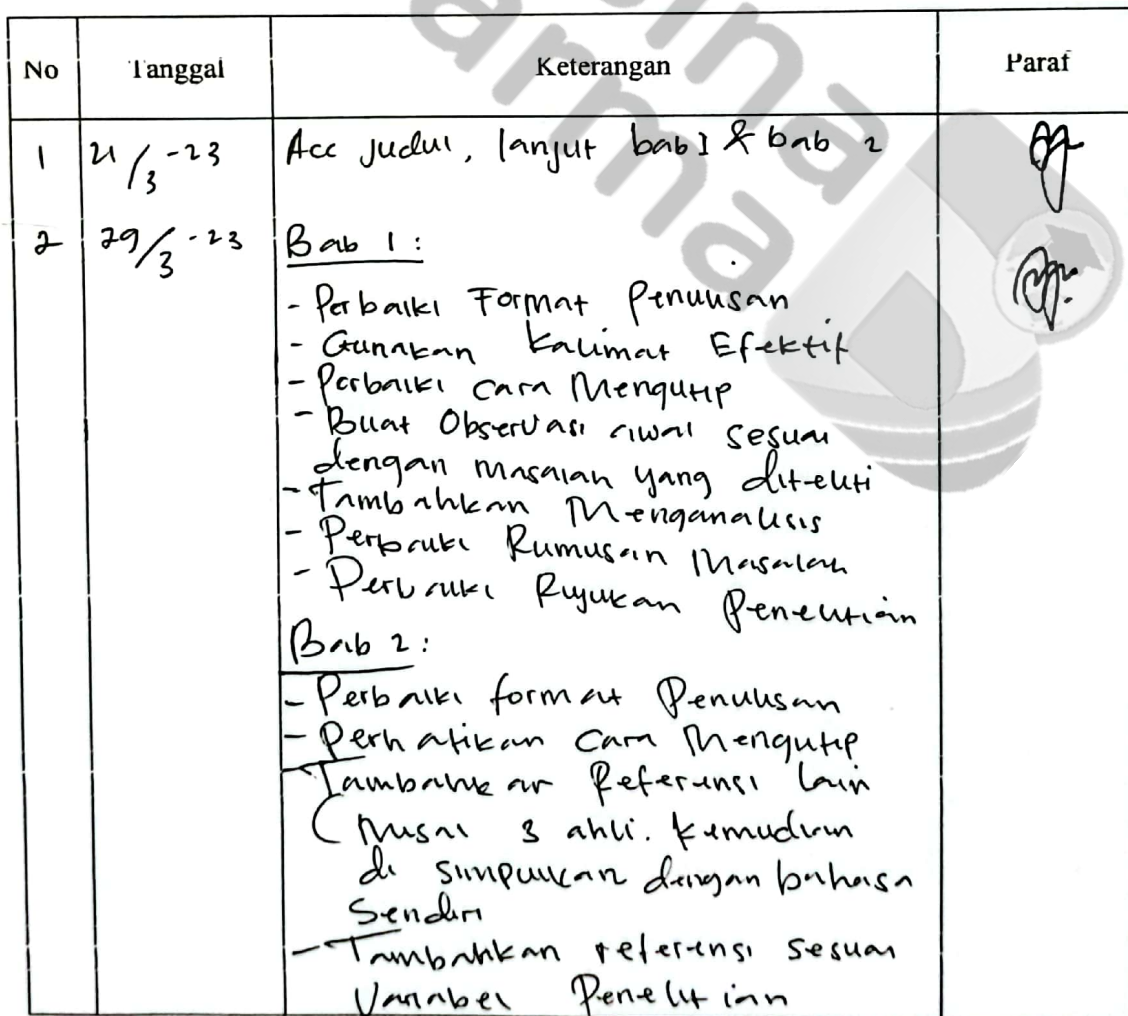 No Tanggal Keterangan Paraf
1 21/3-23 Acc Judul, lanjut bab 1 & bab 2
2 29/3-23 Bab 1:
- Perbaiki Format Penulisan
- Gunakan Kalimat Efektif
- Perbaiki cara Mengutip
- Buat Observasi awal sesuai
dengan masalah yang diteliti
- Tambahkan Menganalisis
- Perbaiki Rumusan Masalah
- Perbaiki Rujukan Penelitian
Bab 2:
- Perbaiki format Penulisan
- Perhatikan Cara Mengutip
- Tambahkan Referensi lain
(Misal 3 ahli. Kemudian
di simpulkan dengan bahasa
Sendiri
- Tambahkan referensi sesuai
Variabel Penelitian